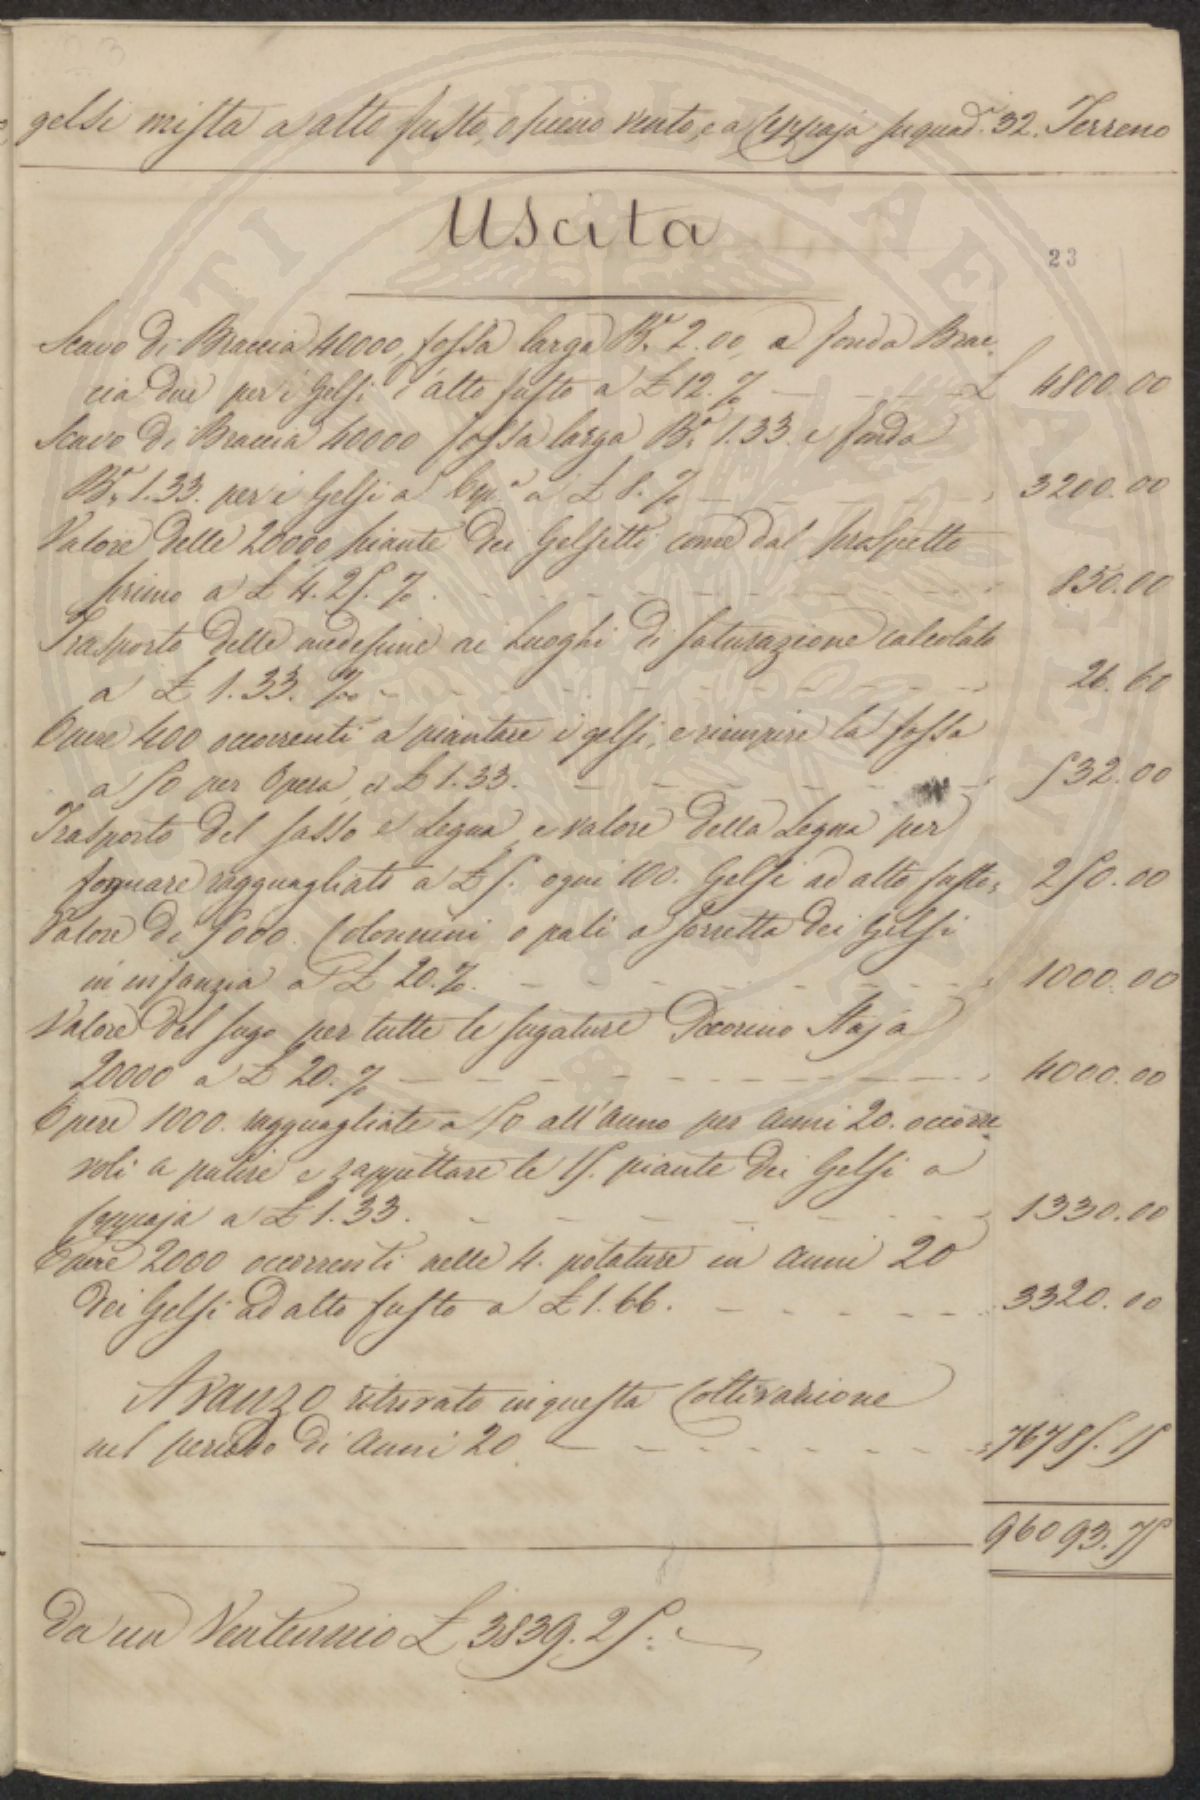 gelsi mista a alto fusto, o pieno vento, e a Ceppaja p quad. 32. Terreno
Uscita
23
Scavo di Braccia 40000, fossa larga Br. 2.00, a fonda Brac-
cia due per i Gelsi d'alto fusto a £ 12. % £ 4800.00
Scavo di Braccia 40000 fossa larga Br. 1.33. e fonda
Br. 1.33. per i Gelsi a Cep.a a £ 8. % 3200.00
Valore delle 20000 piante dei Gelsetti come dal prospetto
primo a £ 4.25. % 850.00
Trasporto delle medesime ai Luoghi di saturazione calcolato
a £ 1.33. %o 26.60
Opere 400 occorrenti a piantare i gelsi, e riempire la fossa
a 50 per Opera, a £ 1.33. 532.00
Trasporto del sasso e Legna, e valore della Legna per
fognare ragguagliato a £ 5. ogni 100. Gelsi ad alto fusto 250.00
Valore di 5000. Colonnini o pali a sorretta dei Gelsi
in infanzia a £ 20. % 1000.00
Valore del sugo per tutte le sugature Pecorino Staja
20000 a £ 20. % 4000.00
Opere 1000. ragguagliate a 50 all'anno per anni 20. occorre
voli a pulire e zappettare le 15. piante dei Gelsi a
ceppaja a £ 1.33. 1330.00
Opere 2000 occorrenti nelle 4. potature in anni 20
dei Gelsi ad alto fusto a £ 1.66. 3320.00
Avanzo ritrovato in questa Coltivazione
nel periodo di anni 20 76785.15
96093.75
Da un Ventennio £ 3839.25.